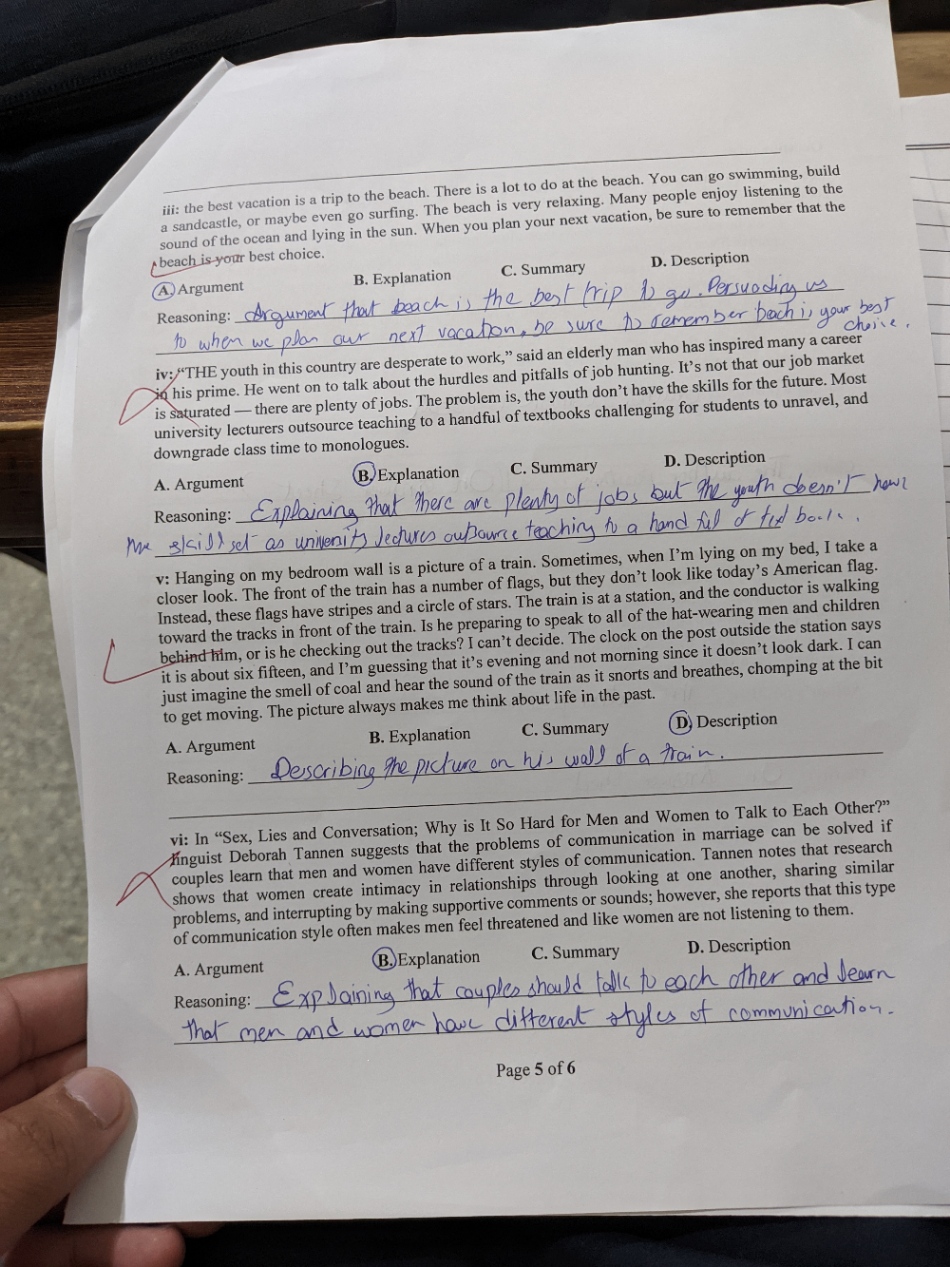 iii: the best vacation is a trip to the beach. There is a lot to do at the beach. You can go swimming, build
a sandcastle, or maybe even go surfing. The beach is very relaxing. Many people enjoy listening to the
sound of the ocean and lying in the sun. When you plan your next vacation, be sure to remember that the
beach is your best choice.
A. Argument B. Explanation C. Summary D. Description
Reasoning: Argument that beach is the best trip to go. Persuading us
to when we plan our next vacation, be sure to remember beach is your best
choice.
iv: “THE youth in this country are desperate to work,” said an elderly man who has inspired many a career
in his prime. He went on to talk about the hurdles and pitfalls of job hunting. It’s not that our job market
is saturated — there are plenty of jobs. The problem is, the youth don’t have the skills for the future. Most
university lecturers outsource teaching to a handful of textbooks challenging for students to unravel, and
downgrade class time to monologues.
A. Argument B. Explanation C. Summary D. Description
Reasoning: Explaining that there are plenty of jobs but the youth doesn't have
the skill set as university lectures outsource teaching to a hand ful of text
v: Hanging on my bedroom wall is a picture of a train. Sometimes, when I’m lying on my bed, I take a
closer look. The front of the train has a number of flags, but they don’t look like today’s American flag.
Instead, these flags have stripes and a circle of stars. The train is at a station, and the conductor is walking
toward the tracks in front of the train. Is he preparing to speak to all of the hat-wearing men and children
behind him, or is he checking out the tracks? I can’t decide. The clock on the post outside the station says
it is about six fifteen, and I’m guessing that it’s evening and not morning since it doesn’t look dark. I can
just imagine the smell of coal and hear the sound of the train as it snorts and breathes, chomping at the bit
to get moving. The picture always makes me think about life in the past.
A. Argument B. Explanation C. Summary D. Description
Reasoning: Describing the picture on his wall of a train.
vi: In “Sex, Lies and Conversation; Why is It So Hard for Men and Women to Talk to Each Other?”
linguist Deborah Tannen suggests that the problems of communication in marriage can be solved if
couples learn that men and women have different styles of communication. Tannen notes that research
shows that women create intimacy in relationships through looking at one another, sharing similar
problems, and interrupting by making supportive comments or sounds; however, she reports that this type
of communication style often makes men feel threatened and like women are not listening to them.
A. Argument B. Explanation C. Summary D. Description
Reasoning: Explaining that couples should talk to each other and learn
that men and women have different styles of communication.
Page 5 of 6